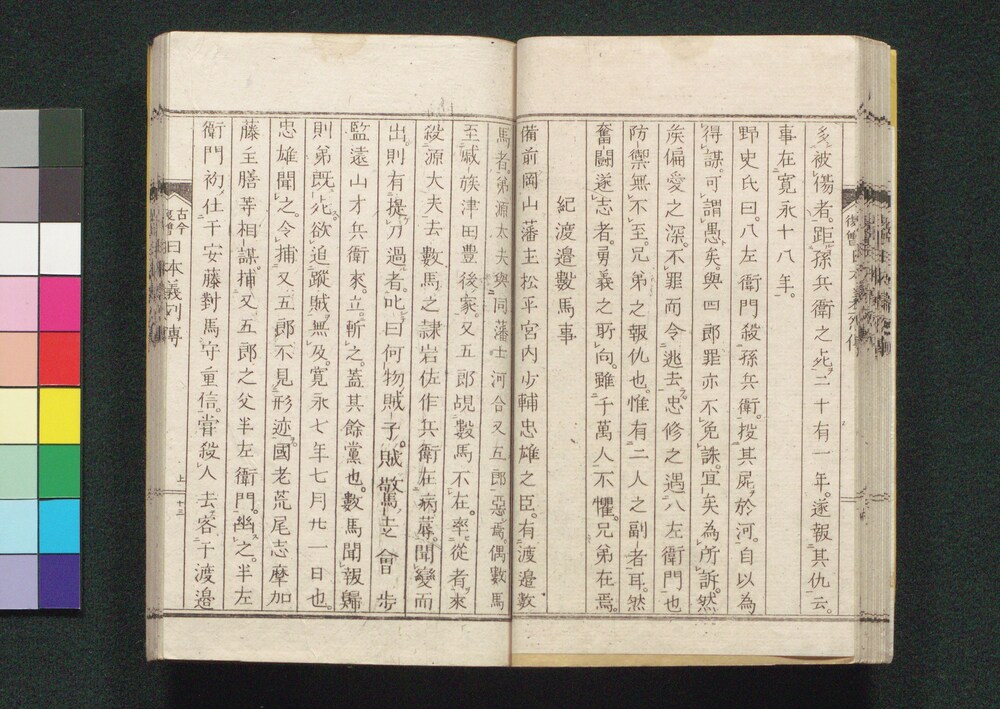 多被傷者。距孫兵衛之死二十有一年。遂報其仇云。
事在寛永十八年。
野史氏曰。八左衛門殺孫兵衛。投其屍於河。自以為
得謀。可謂愚矣。與四郎罪亦不免誅。宜矣為所訴。然
矦偏愛之深。不罪而令逃去。忠修之遇八左衛門也
防禦無不至。兄弟之報仇也。惟有二人之副者耳。然
奮鬪遂志者。勇義之所向。雖千萬人不懼。兄弟在焉。
紀渡邉數馬事
備前岡山藩主松平宮内少輔忠雄之臣。有渡邉數
馬者。弟源太夫與同藩士河合又五郎惡焉。偶數馬
至戚族津田豊後家。又五郎覘數馬不在。率從者來
殺源大夫去數馬之隷岩佐作兵衛在病蓐。聞變而
出。則有提刀過者。叱曰何物賊子。賊驚走會歩
監遠山才兵衛來。立斬之。蓋其餘黨也。數馬聞報歸
則弟既死。欲追蹤賊無及。寛永七年七月廿一日也。
忠雄聞之。令捕又五郎不見形迹。國老荒尾志摩加
藤主膳等相謀。捕又五郎之父半左衛門。幽之。半左
衛門初仕于安藤對馬守重信。甞殺人去客于渡邉
古今復讐日本義列傳
上
十三